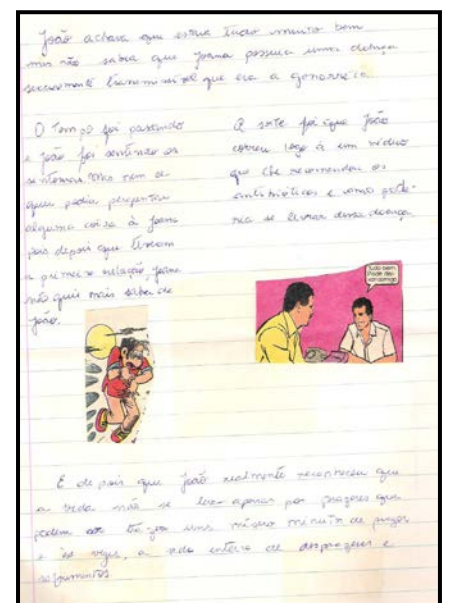 João achava que estava tudo muito bem
mas não sabia que Joana possuia uma doença
sexualmente transmissível que era a gonorréia.
O tempo foi passando
e João foi sentindo os
sintomas. Mas nem se
quer podia perguntar
alguma coisa à Joana
pois depois que tiveram
a primeira relação, Joana
não quis mais saber de
João.
A sorte foi que João
correu logo à um médico
que lhe recomendou os
antibióticos e como pode-
ria se livrar dessa doença.
Tudo bem.
Pode dei-
xar comigo.
E depois que João realmente reconheceu que
a vida não se leva apenas por prazeres que
podem trazer uns minuto de prazer
e às vezes, a vida inteira de desprazeres e
sofrimentos